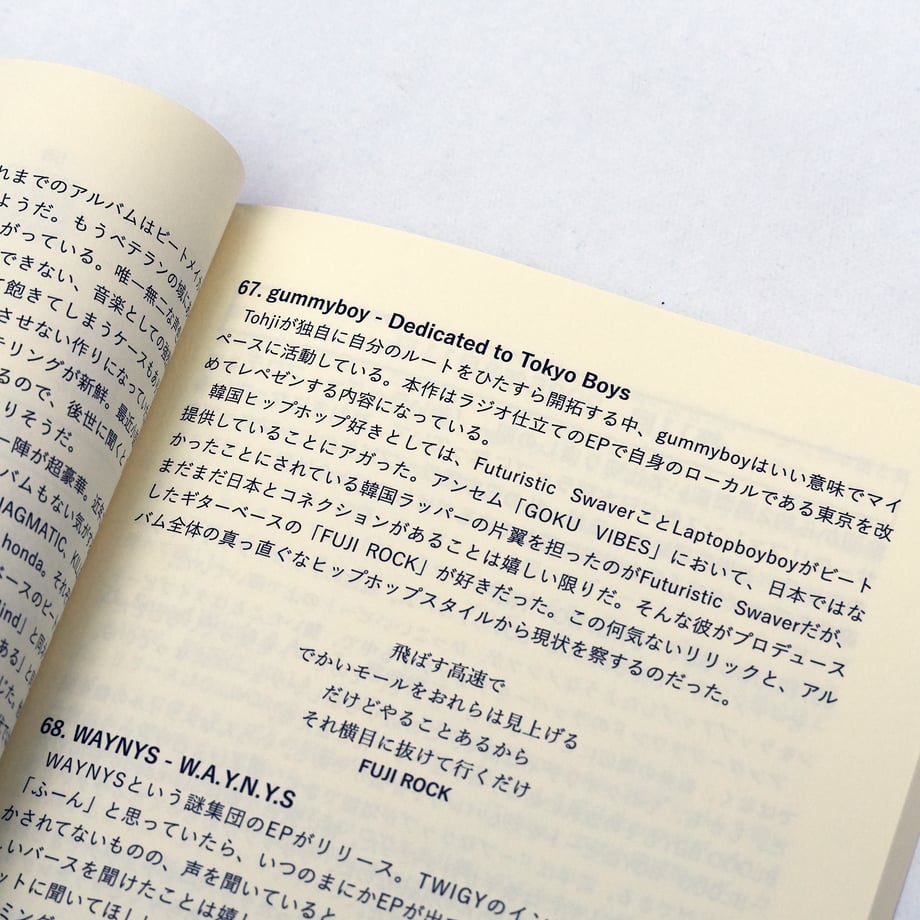 れまでのアルバムはビートメイカ
ようだ。もうベテランの域に
がっている。唯一無二な声を
できない、音楽としての強
飽きてしまうケースもあ
させない作りになってい
テリングが新鮮。最近
るので、後世に聞くと
りそうだ。
一陣が超豪華。近
バムもない気が
HAGMATIC, KILL
honda。それ
ベースのビー
ind」と同
ある」と
67. gummyboy - Dedicated to Tokyo Boys
Tohjiが独自に自分のルートをひたすら開拓する中、gummyboyはいい意味でマイ
ペースに活動している。本作はラジオ仕立てのEPで自身のローカルである東京を改
めてレペゼンする内容になっている。
韓国ヒップホップ好きとしては、Futuristic SwaverことLaptopboyboyがビート
提供していることにアガった。アンセム「GOKU VIBES」において、日本ではな
かったことにされている韓国ラッパーの片翼を担ったのがFuturistic Swaverだが、
まだまだ日本とコネクションがあることは嬉しい限りだ。そんな彼がプロデュース
したギターベースの「FUJI ROCK」が好きだった。この何気ないリリックと、アル
バム全体の真っ直ぐなヒップホップスタイルから現状を察するのだった。
飛ばす高速で
でかいモールをおれらは見上げる
だけどやることあるから
それ横目に抜けて行くだけ
FUJI ROCK
68. WAYNYS - W.A.Y.N.Y.S
WAYNYSという謎集団のEPがリリース。TWIGYのイン
「ふーん」と思っていたら、いつのまにかEPが出て
かされてないものの、声を聞いていると
いバースを聞けたことは嬉し
ットに聞いてほし
ミング